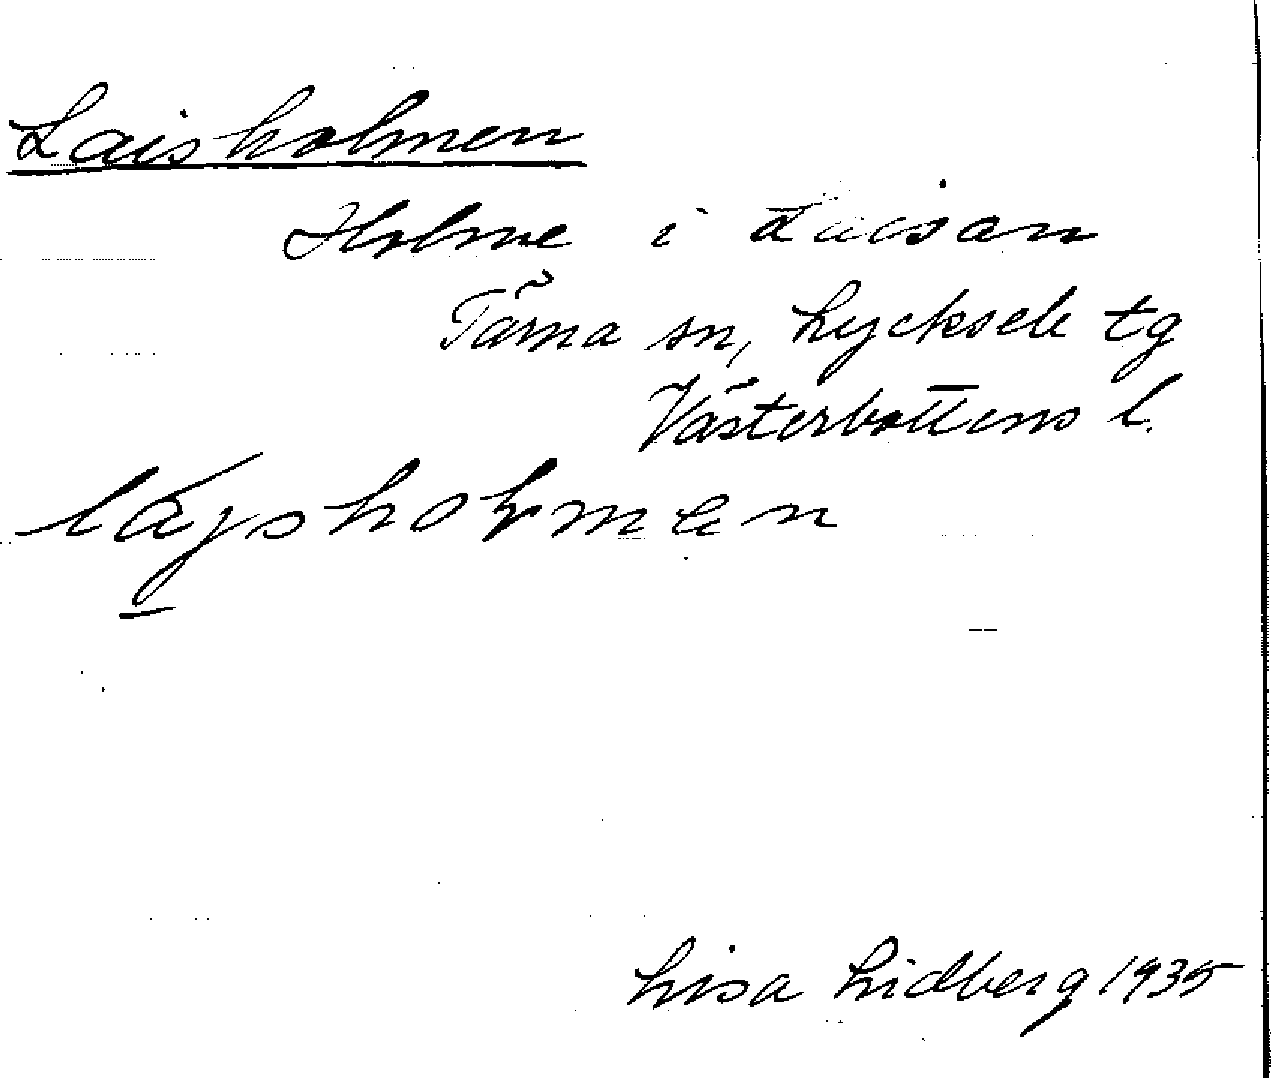 Laisholmen
Holme i Laisan
Tärna sn, Lycksele tg
Västerbottens l.
lájshoļmen
Lisa Lidberg 1935